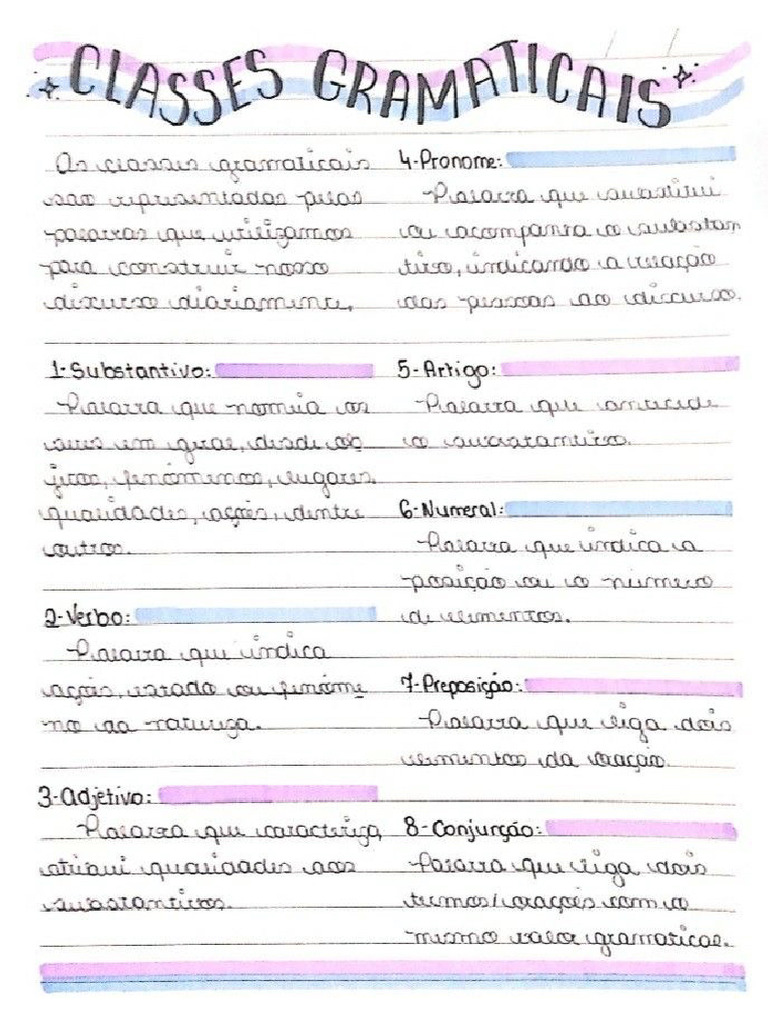 CLASSES GRAMATICAIS
As classes gramaticais
são representadas pelas
palavras que utilizamos
para construir nosso
discurso diariamente.
1-Substantivo:
Palavra que nomeia os
seres em geral, desde ob
jetos, fenômenos, lugares,
qualidades, ações, dentre
outros.
2-Verbo:
Palavra que indica
ações, estado ou fenôme
no da natureza.
3-Adjetivo:
Palavra que caracteriza,
atribui qualidades aos
substantivos.
4-Pronome:
Palavra que substitui
ou acompanha o substan
tivo, indicando a relação
das pessoas do discurso.
5-Artigo:
Palavra que antecede
o substantivo.
6-Numeral:
Palavra que indica a
posição ou o número
de elementos.
7-Preposição:
Palavra que liga dois
elementos da oração.
8-Conjunção:
Palavra que liga dois
termos/orações com o
mesmo valor gramatical.